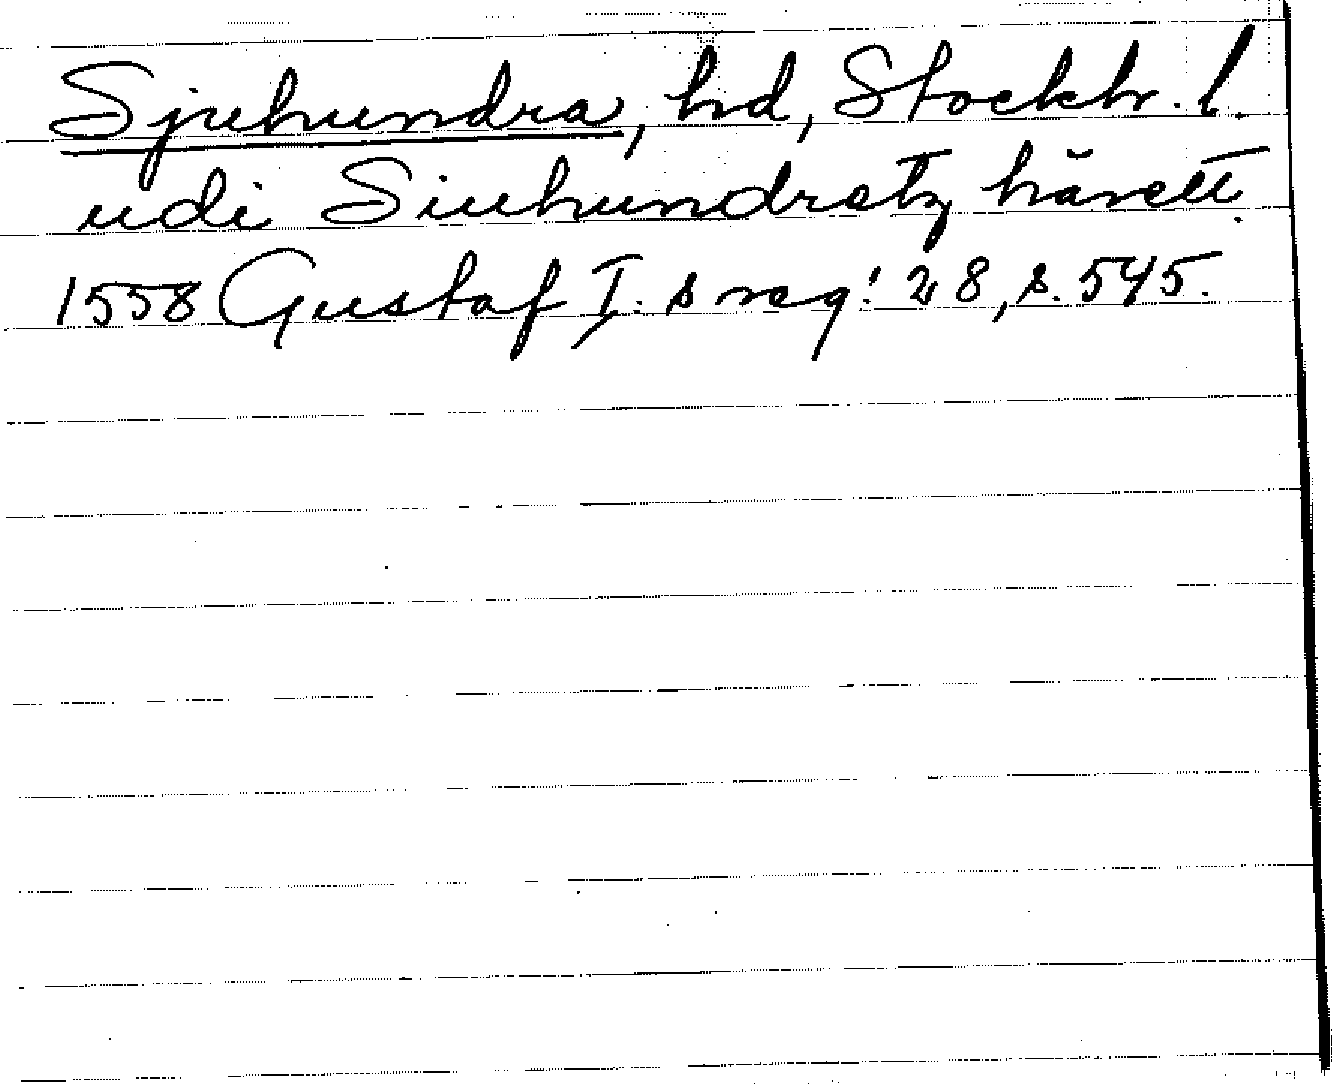 Sjuhundra, hd, Stockh. l.
udi Siuhundratz härett.
1558 Gustaf I:s reg: 28, s. 545.